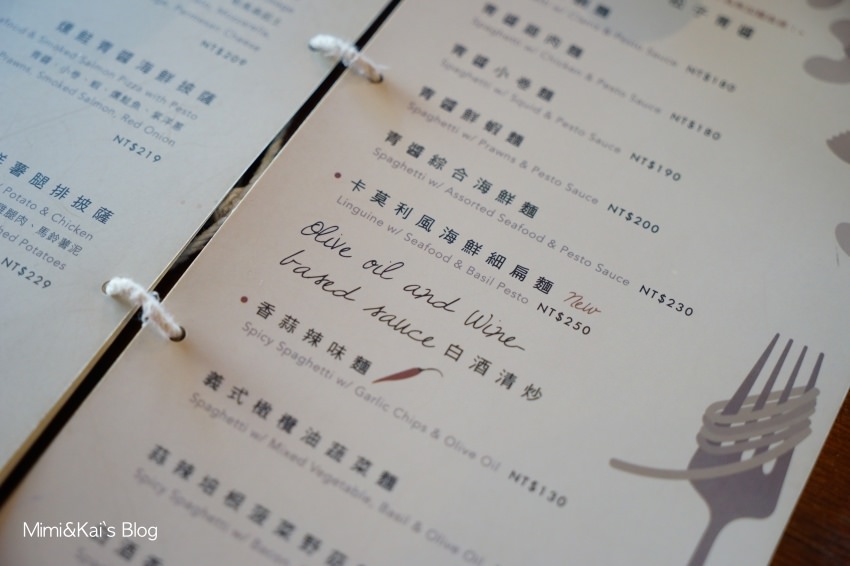 NT$209
燻鮭青醬海鮮披薩
& Smoked Salmon Pizza with Pesto
青醬，小卷，蝦，燻鮭魚，紫洋蔥
Prawns, Smoked Salmon, Red Onion
NT$219
薯腿排披薩
Potato & Chicken
腿肉、馬鈴薯泥
Potatoes
NT$229
青醬
青醬雞肉麵
Spaghetti w/ Chicken & Pesto Sauce NT$180
青醬小卷麵
Spaghetti w/ Squid & Pesto Sauce NT$180
青醬鮮蝦麵
Spaghetti w/ Prawns & Pesto Sauce NT$190
青醬綜合海鮮麵 NT$200
Spaghetti w/ Assorted Seafood & Pesto Sauce NT$230
卡莫利風海鮮細扁麵 New
Linguine w/ Seafood & Basil Pesto NT$250
Olive oil and Wine
based sauce 白酒清炒
香蒜辣味麵
Spicy Spaghetti w/ Garlic Chips & Olive Oil NT$130
義式橄欖油蔬菜麵
Spaghetti w/ Mixed Vegetable, Basil & Olive Oil
蒜辣培根菠菜野菇
Spicy Spaghetti w/ Bacon
Mimi&Kai`s Blog